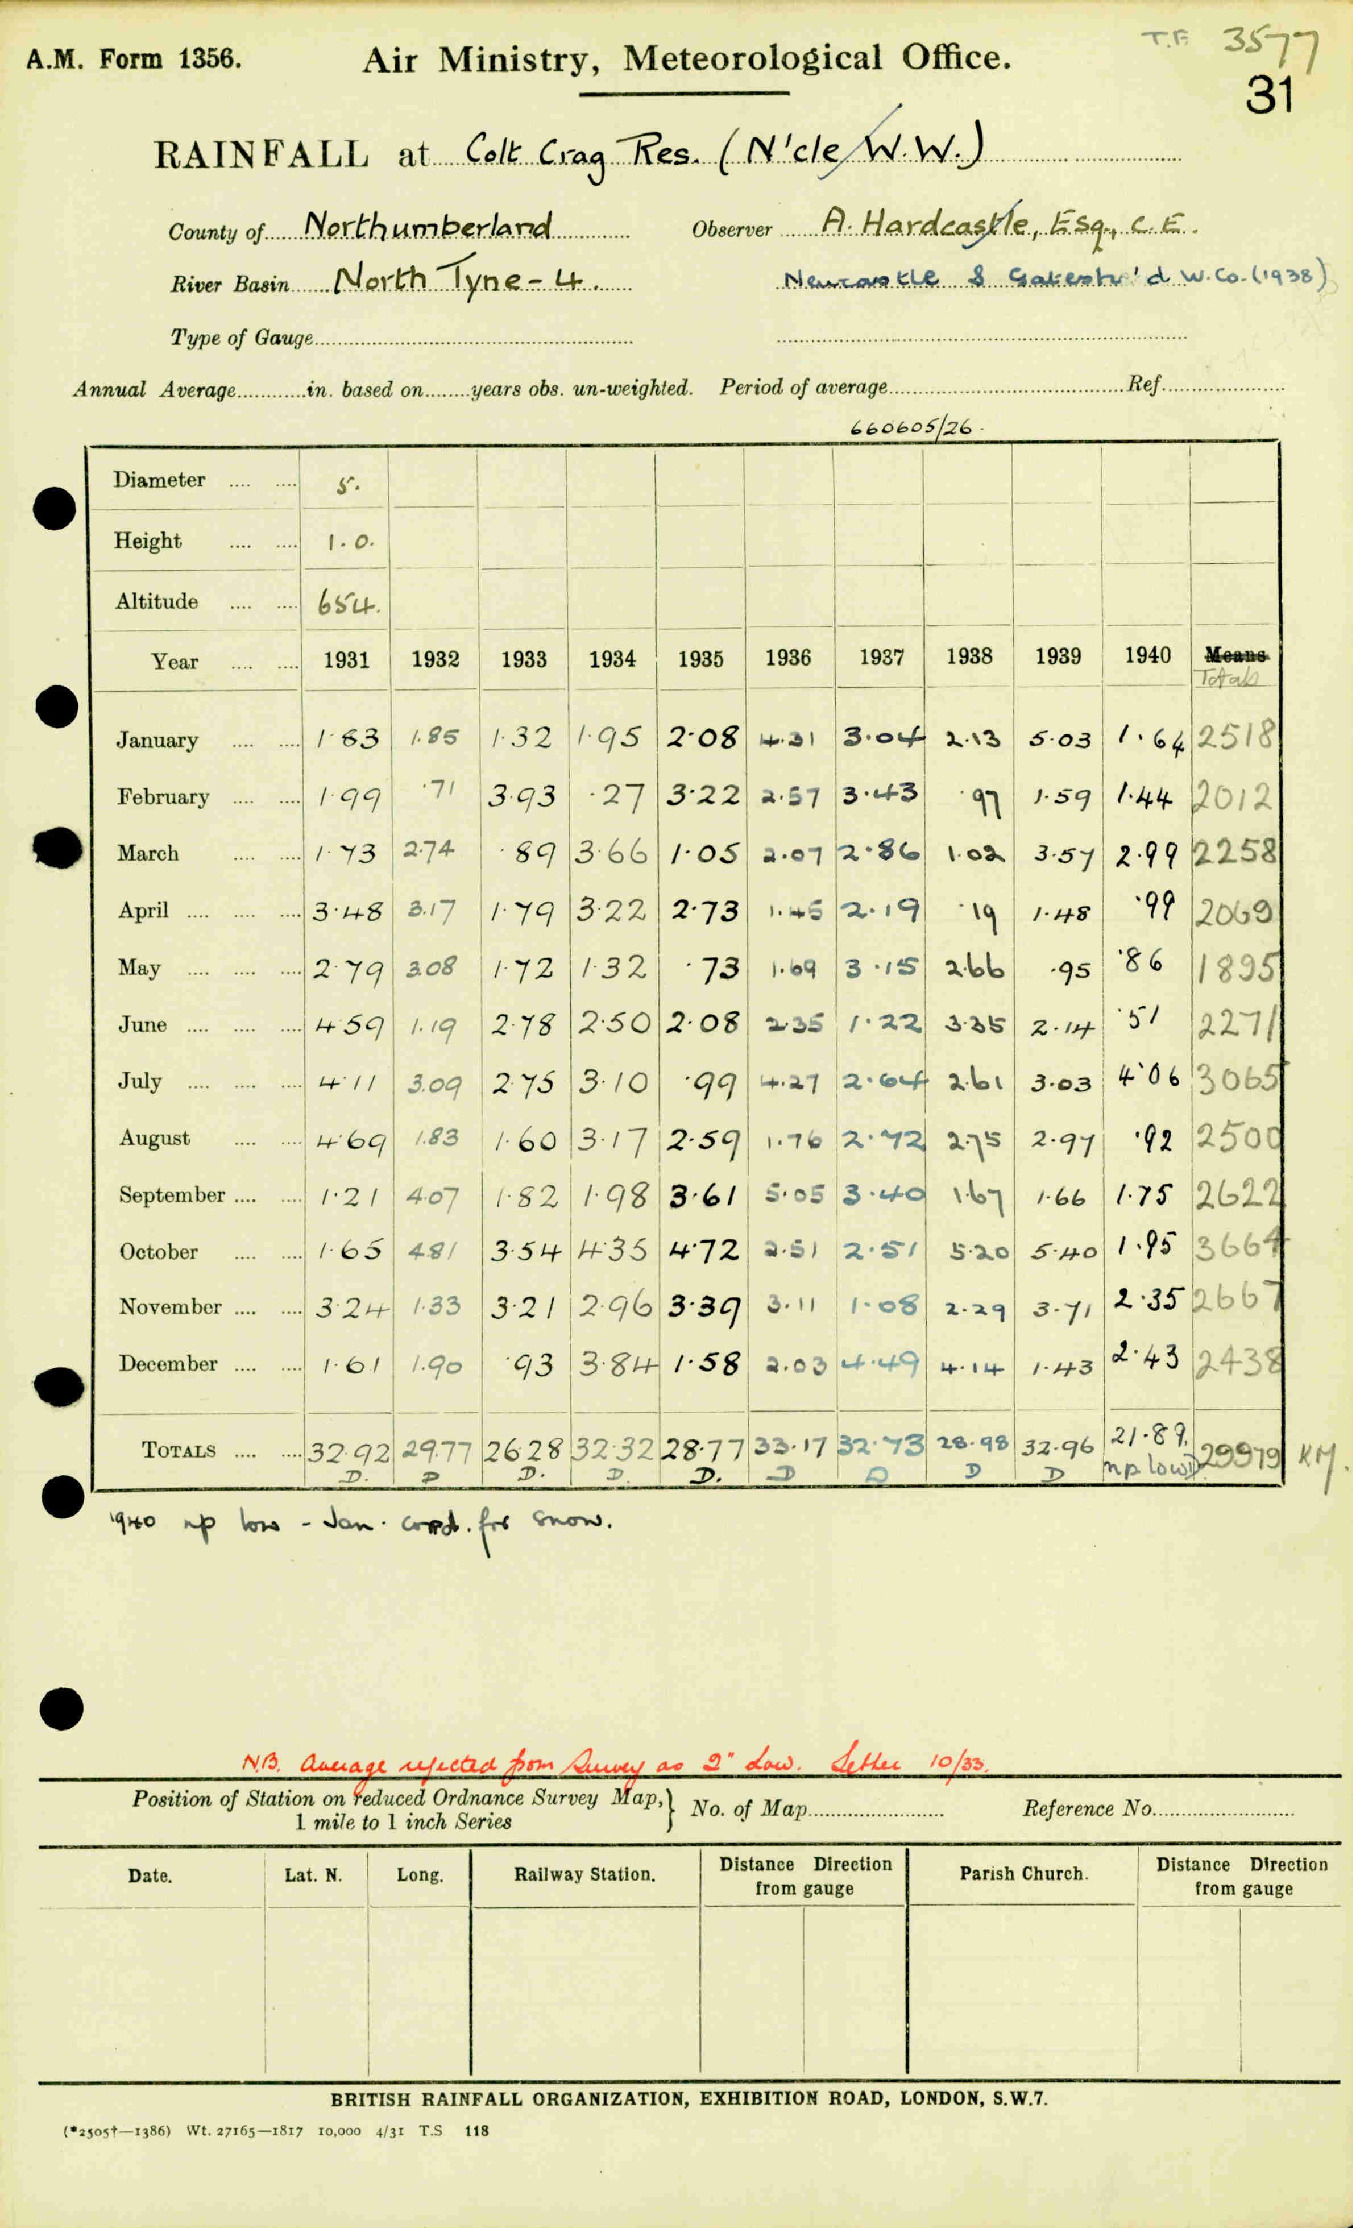 T.F. 3577
A.M. Form 1356. Air Ministry, Meteorological Office.
31
RAINFALL at Colt Crag Res. (N'cle W.W.)
County of Northumberland Observer A. Hardcastle, Esq., C.E.
River Basin North Tyne - 4. Newcastle & Gateshd'd W. Co. (1938)
Type of Gauge
Annual Average in. based on years obs. un-weighted. Period of average Ref.
660605/26.
Diameter 5.
Height 1.0.
Altitude 654.
Year 1931 1932 1933 1934 1935 1936 1937 1938 1939 1940 Means
Totals
January 1.83 1.85 1.32 1.95 2.08 4.31 3.04 2.13 5.03 1.64 2518
February 1.99 .71 3.93 .27 3.22 2.57 3.43 .97 1.59 1.44 2012
March 1.73 2.74 .89 3.66 1.05 2.07 2.86 1.02 3.57 2.99 2258
April 3.48 3.17 1.79 3.22 2.73 1.45 2.19 .19 1.48 .99 2069
May 2.79 3.08 1.72 1.32 .73 1.69 3.15 2.66 .95 .86 1895
June 4.59 1.19 2.78 2.50 2.08 2.35 1.22 3.35 2.14 .51 2271
July 4.11 3.09 2.75 3.10 .99 4.27 2.64 2.61 3.03 4.06 3065
August 4.69 1.83 1.60 3.17 2.59 1.76 2.72 2.75 2.97 .92 2500
September 1.21 4.07 1.82 1.98 3.61 5.05 3.40 1.67 1.66 1.75 2622
October 1.65 4.81 3.54 4.35 4.72 2.51 2.51 5.20 5.40 1.95 3664
November 3.24 1.33 3.21 2.96 3.39 3.11 1.08 2.29 3.71 2.35 2667
December 1.61 1.90 .93 3.84 1.58 2.03 4.49 4.14 1.43 2.43 2438
TOTALS 32.92 29.77 26.28 32.32 28.77 33.17 32.73 28.98 32.96 21.89. 29979 KM.
D. D D. D. D. D D D D np low D.
1940 np low - Jan. corrd. for snow.
N.B. Average rejected from Survey as 2" low. Letter 10/33.
Position of Station on reduced Ordnance Survey Map, No. of Map Reference No.
1 mile to 1 inch Series
Date. Lat. N. Long. Railway Station. Distance Direction from gauge Parish Church. Distance Direction from gauge
BRITISH RAINFALL ORGANIZATION, EXHIBITION ROAD, LONDON, S.W.7.
(*2505†—1386) Wt. 27165—1817 10,000 4/31 T.S 118